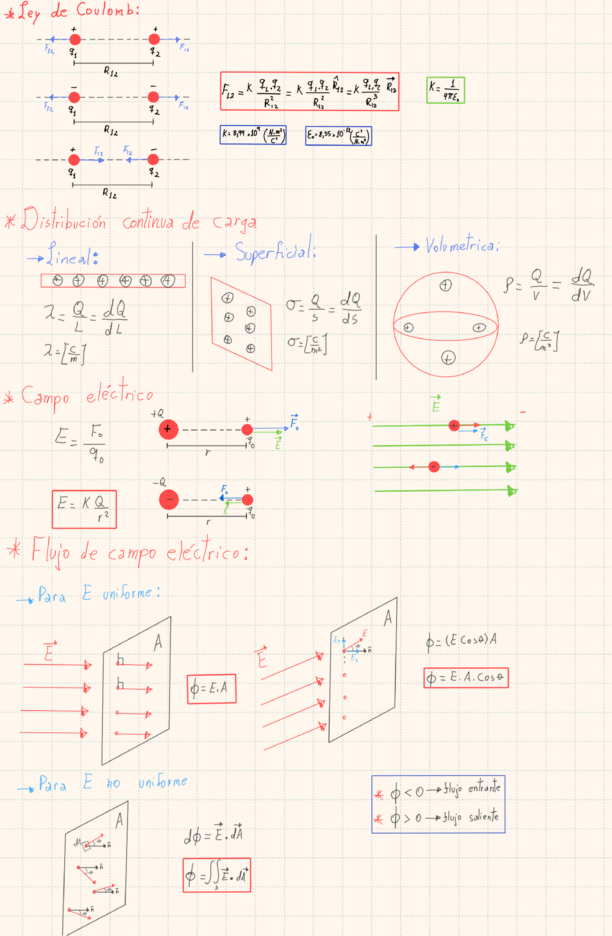 * Ley de Coulomb:
+ +
F₁₂ q₁ q₂ F₁₂
R₁₂
- -
F₁₂ q₁ q₂ F₁₂
R₁₂
+ F₁₂ F₁₂ -
q₁ q₂
R₁₂
F₁₂ = K q₁.q₂/R₁₂² = K q₁.q₂/R₁₂² R̂₁₂ = K q₁.q₂/R₁₂³ R⃗₁₂
K = 1/4πε₀
* Distribución continua de carga
→ Lineal:
+ + + + + +
λ = Q/L = dQ/dL
λ = [c/m]
→ Superficial:
+ +
+ +
+ +
σ = Q/S = dQ/dS
σ = [c/m²]
→ Volumetrica:
+
+ +
+
ρ = Q/V = dQ/dV
ρ = [c/m³]
* Campo eléctrico
E = F₀/q₀
+Q + F⃗₀
+ q₀ E⃗
r
E = K Q/r²
-Q F₀ +
- E q₀
r
E⃗
+ -
+ F⃗
-
* Flujo de campo eléctrico:
→ Para E uniforme:
E⃗ A
ϕ = E.A
E⃗ A
E n⃗
ϕ = (E Cosθ)A
ϕ = E.A.Cosθ
→ Para E no uniforme
A
dA n⃗
n⃗
n⃗
n⃗
dϕ = E⃗.dA⃗
ϕ = ∬ₛ E⃗.dA⃗
* ϕ < 0 → flujo entrante
* ϕ > 0 → flujo saliente